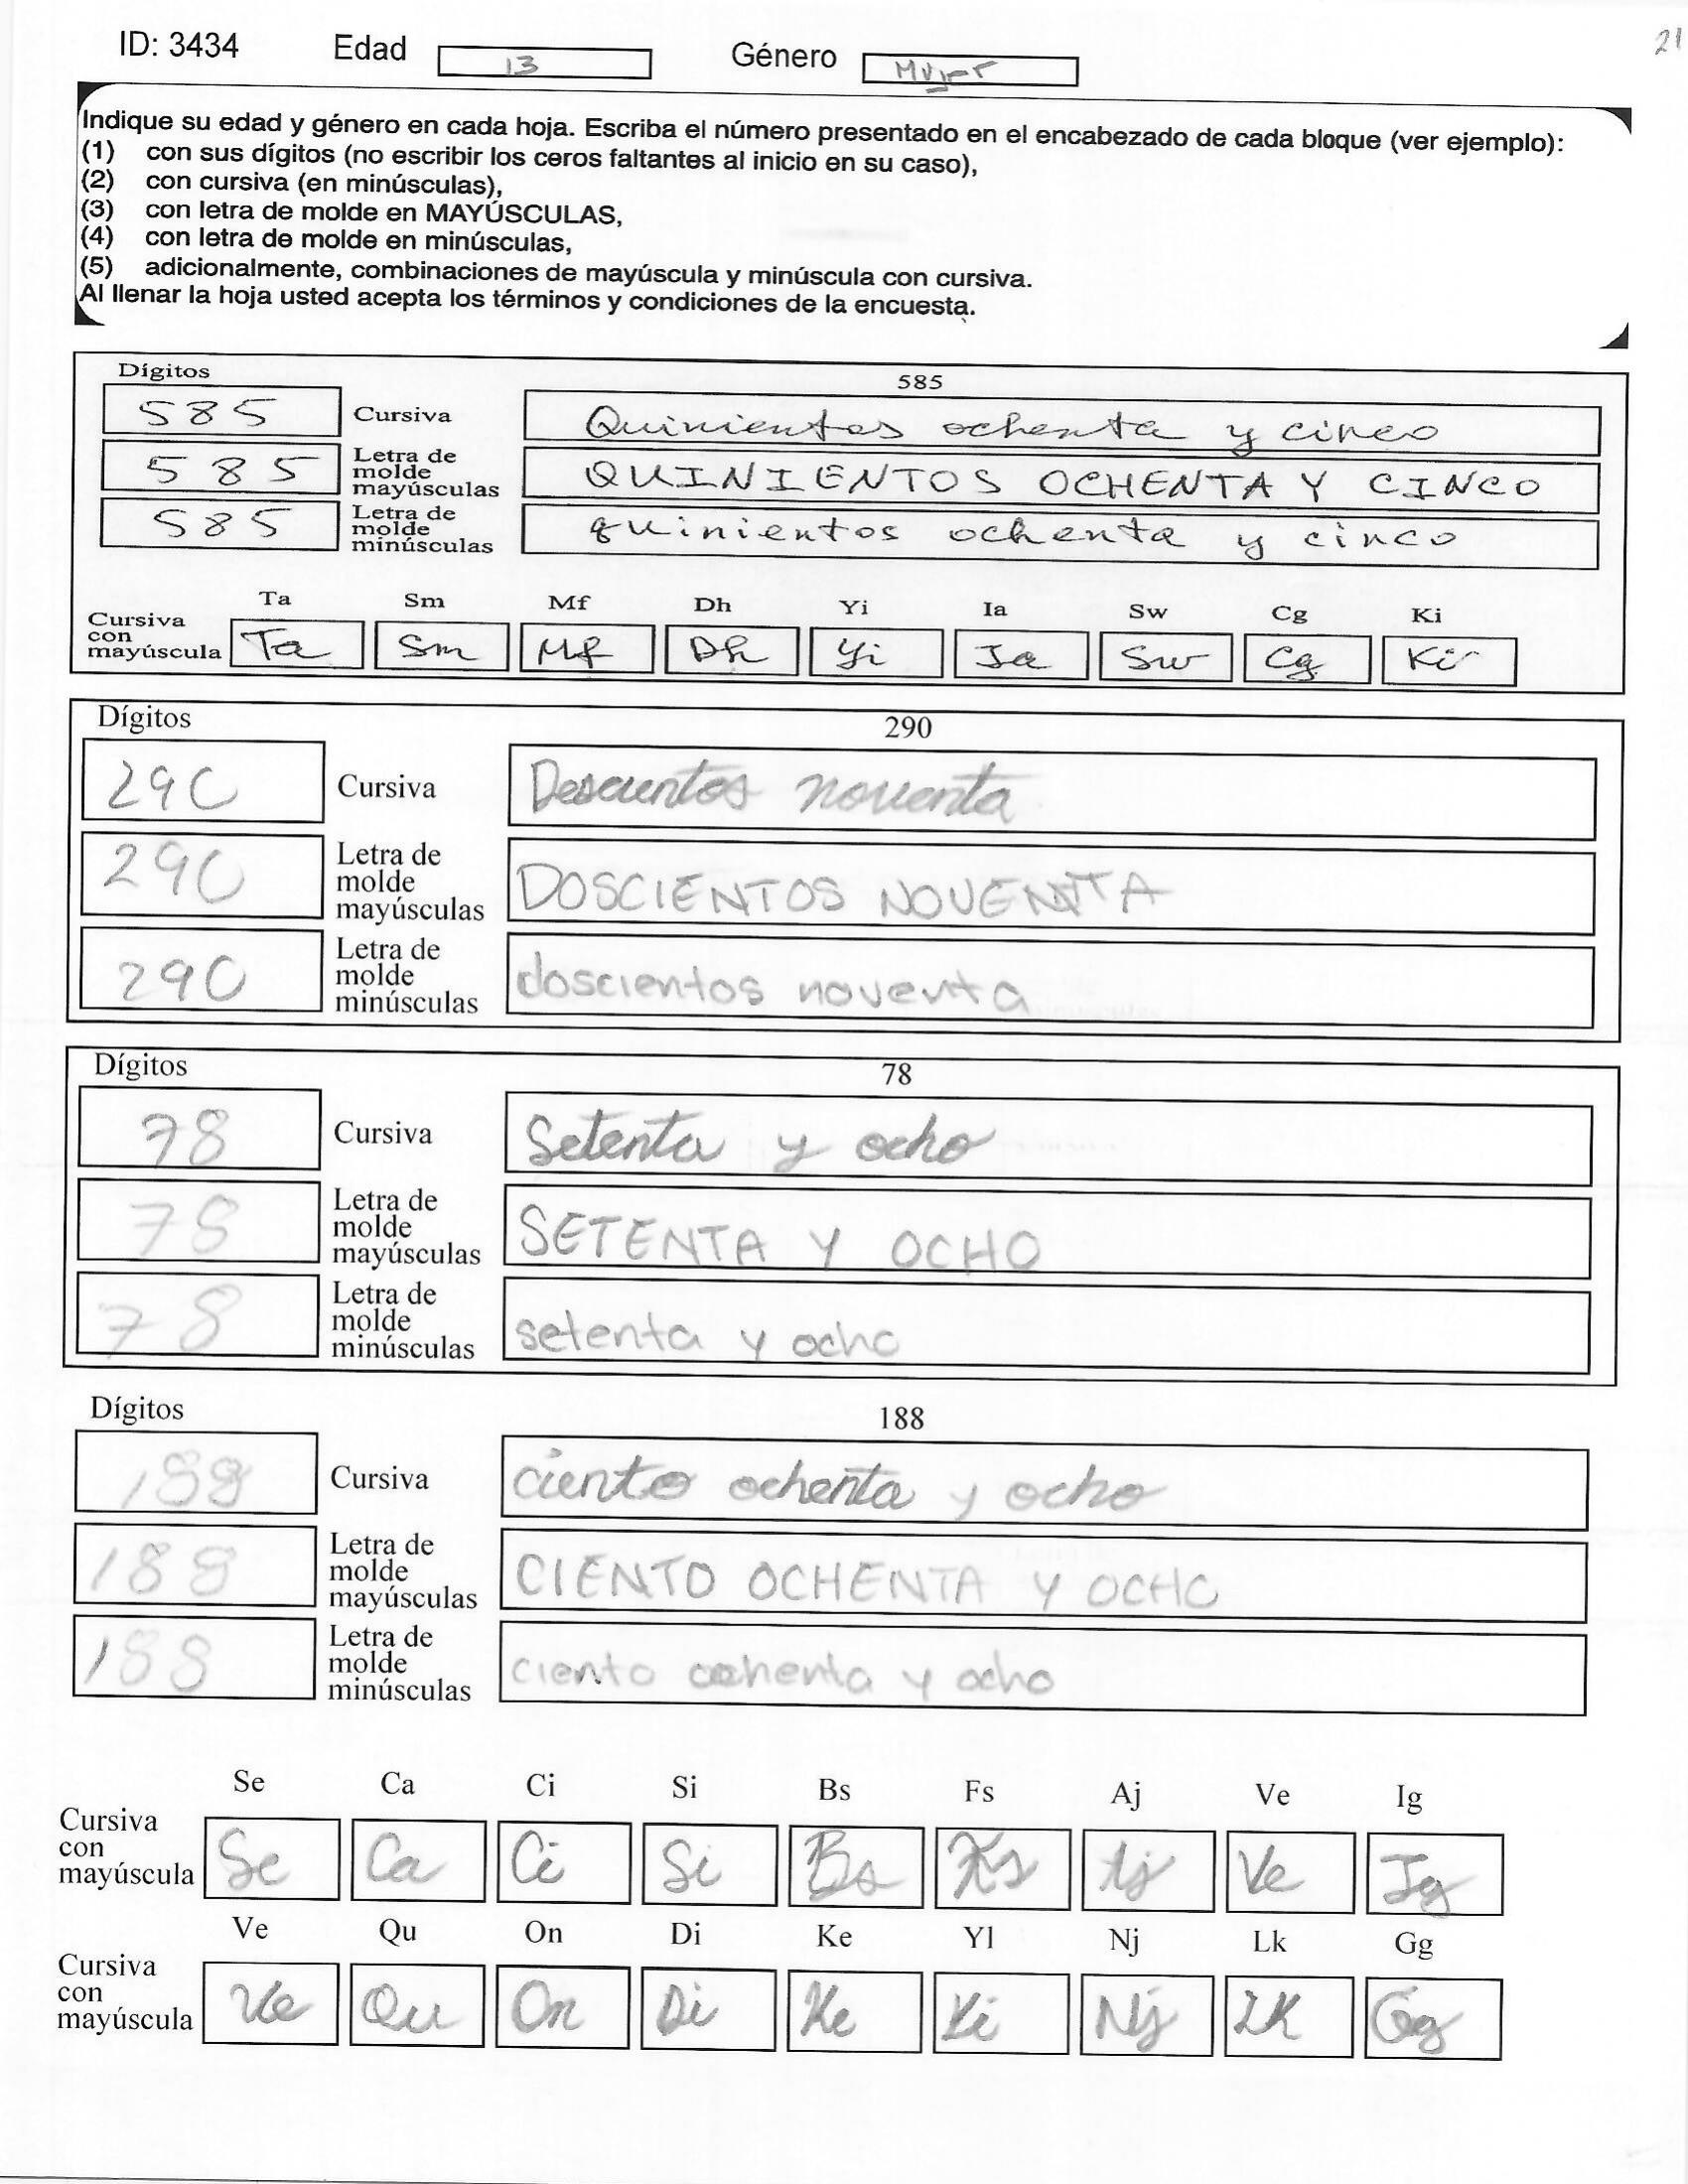 ID: 3434 Edad 13 Género Mujer 21
Indique su edad y género en cada hoja. Escriba el número presentado en el encabezado de cada bloque (ver ejemplo):
(1) con sus dígitos (no escribir los ceros faltantes al inicio en su caso),
(2) con cursiva (en minúsculas),
(3) con letra de molde en MAYÚSCULAS,
(4) con letra de molde en minúsculas,
(5) adicionalmente, combinaciones de mayúscula y minúscula con cursiva.
Al llenar la hoja usted acepta los términos y condiciones de la encuesta.
Dígitos 585
585 Cursiva Quinientos ochenta y cinco
585 Letra de molde mayúsculas QUINIENTOS OCHENTA Y CINCO
585 Letra de molde minúsculas quinientos ochenta y cinco
Ta Sm Mf Dh Yi Ia Sw Cg Ki
Cursiva con mayúscula Ta Sm Mf Dh Yi Ia Sw Cg Ki
Dígitos 290
290 Cursiva Descientos noventa
290 Letra de molde mayúsculas DOSCIENTOS NOVENTA
290 Letra de molde minúsculas doscientos noventa
Dígitos 78
78 Cursiva Setenta y ocho
78 Letra de molde mayúsculas SETENTA Y OCHO
78 Letra de molde minúsculas setenta y ocho
Dígitos 188
188 Cursiva ciento ochenta y ocho
188 Letra de molde mayúsculas CIENTO OCHENTA Y OCHO
188 Letra de molde minúsculas ciento ochenta y ocho
Se Ca Ci Si Bs Fs Aj Ve Ig
Cursiva con mayúscula Se Ca Ci Si Bs Fs Aj Ve Ig
Ve Qu On Di Ke Yl Nj Lk Gg
Cursiva con mayúscula Ve Qu On Di Ke Yi Nj LK Gg